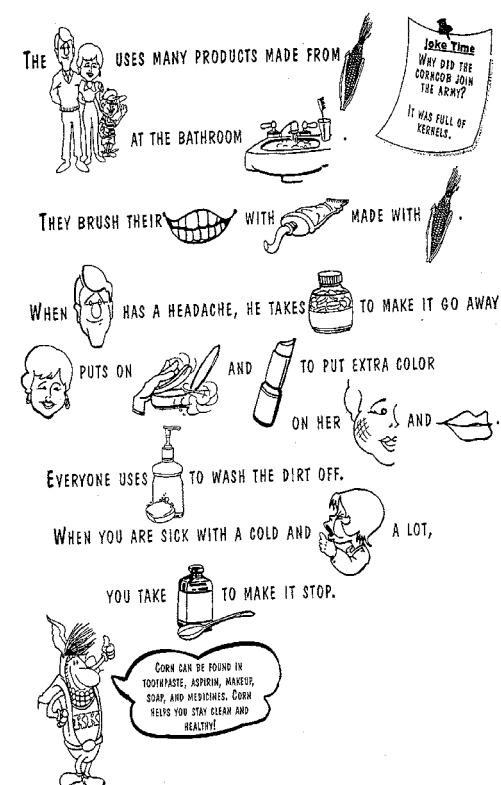 THE USES MANY PRODUCTS MADE FROM
AT THE BATHROOM .
Joke Time
WHY DID THE
CORNCOB JOIN
THE ARMY?
IT WAS FULL OF
KERNELS.
THEY BRUSH THEIR WITH MADE WITH .
WHEN HAS A HEADACHE, HE TAKES TO MAKE IT GO AWAY
PUTS ON AND TO PUT EXTRA COLOR
ON HER AND .
EVERYONE USES TO WASH THE DIRT OFF.
WHEN YOU ARE SICK WITH A COLD AND A LOT,
YOU TAKE TO MAKE IT STOP.
CORN CAN BE FOUND IN
TOOTHPASTE, ASPIRIN, MAKEUP,
SOAP, AND MEDICINES. CORN
HELPS YOU STAY CLEAN AND
HEALTHY!